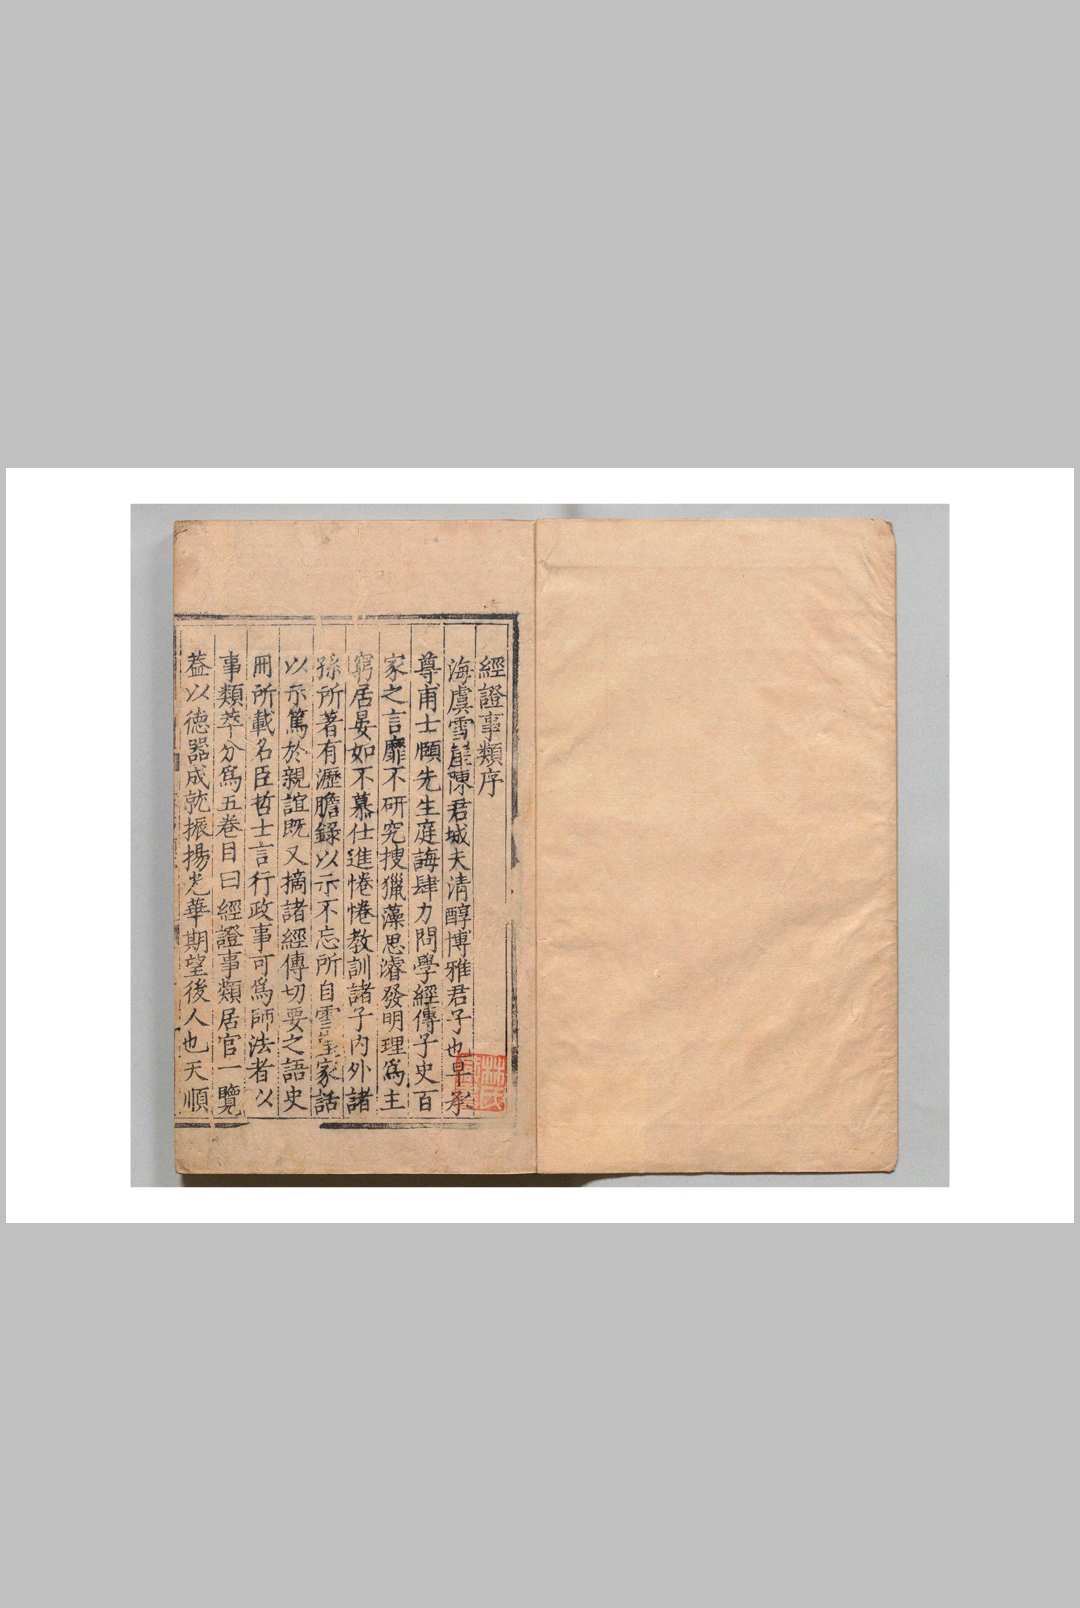 經證事類序
海虞雪崖陳君城夫清醇博雅君子也早承
尊甫士頤先生庭誨肆力問學經傳子史百
家之言靡不研究搜獵藻思濬發明理爲主
窮居晏如不慕仕進惓惓教訓諸子內外諸
孫所著有瀝膽錄以示不忘所自雲崖家話
以示篤於親誼既又摘諸經傳切要之語史
冊所載名臣哲士言行政事可爲師法者以
事類萃分爲五卷目曰經證事類居官一覽
葢以德器成就振揚光華期望後人也天順
林氏